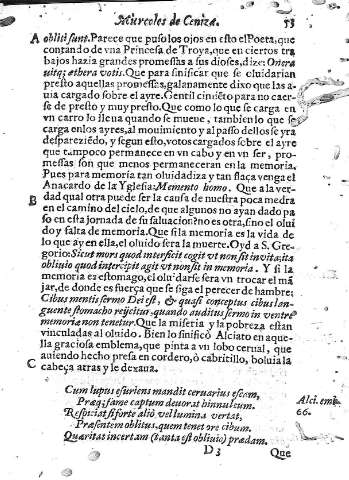 Miercoles de Ceniza. 53
A obliti sunt. Parece que puso los ojos en esto el Poeta, que
contando de vna Princesa de Troya, que en ciertos tra
bajos hazia grandes promessas a sus dioses, dize: Onera
uitq; æthera votis. Que para sinificar que se oluidarian
presto aquellas promessas, galanamente dixo que las a-
uia cargado sobre el ayre. Gentil cimiēto para no caer-
se de presto y muy presto. Que como lo que se carga en
vn carro lo lleua quando se mueve, tambien lo que se
carga en los ayres, al mouimiento y al passo dellos se yra
despareziēdo, y segun esto, votos cargados sobre el ayre
que tampoco permanece en vn cabo y en vn ser, pro-
messas son que menos permaneceran en la memoria,
Pues para memoria tan oluidadiza y tan flaca venga el
Anacardo de la Yglesia: Memento homo. Que a la ver-
B dad qual otra puede ser la causa de nuestra poca medra
en el camino del cielo, de que algunos no ayan dado pa
so en esta jornada de su saluacion? no es otra, sino el olui
do y falta de memoria. Que si la memoria es la vida de
lo que ay en ella, el oluido sera la muerte. Oyd a S. Gre-
gorio: Sicut mors quod interficit cogit vt non sit in vita; ita
obliuio quod intercipit agit vt non sit in memoria. Y si la
memoria es estomago, el oluidarse sera vn trocar el mā
jar, de donde es fuerça que se siga el perecer de hambre;
Cibus mentis sermo Dei est, & quasi conceptus cibus lan-
guente stomacho reijcitur, quando auditus sermo in ventre
memoriæ non tenetur. Que la miseria y la pobreza estan
vinculadas al oluido. Bien lo sinificò Alciato en aque-
lla graciosa emblema, que pinta a vn lobo cerual, que
auiendo hecho presa en cordero, ò cabritillo, boluia la
C cabeça atras y le dexaua.
Cum lupus esuriens mandit ceruarius escam,
Præq; fame captum deuorat hinnuleum.
Respiciat si forte aliò vel lumina vertat,
Præsentem oblitus, quem tenet ore cibum.
Quæritat incertam (tanta est obliuio) prædam.
Alci. emb.
66.
D 3 Que